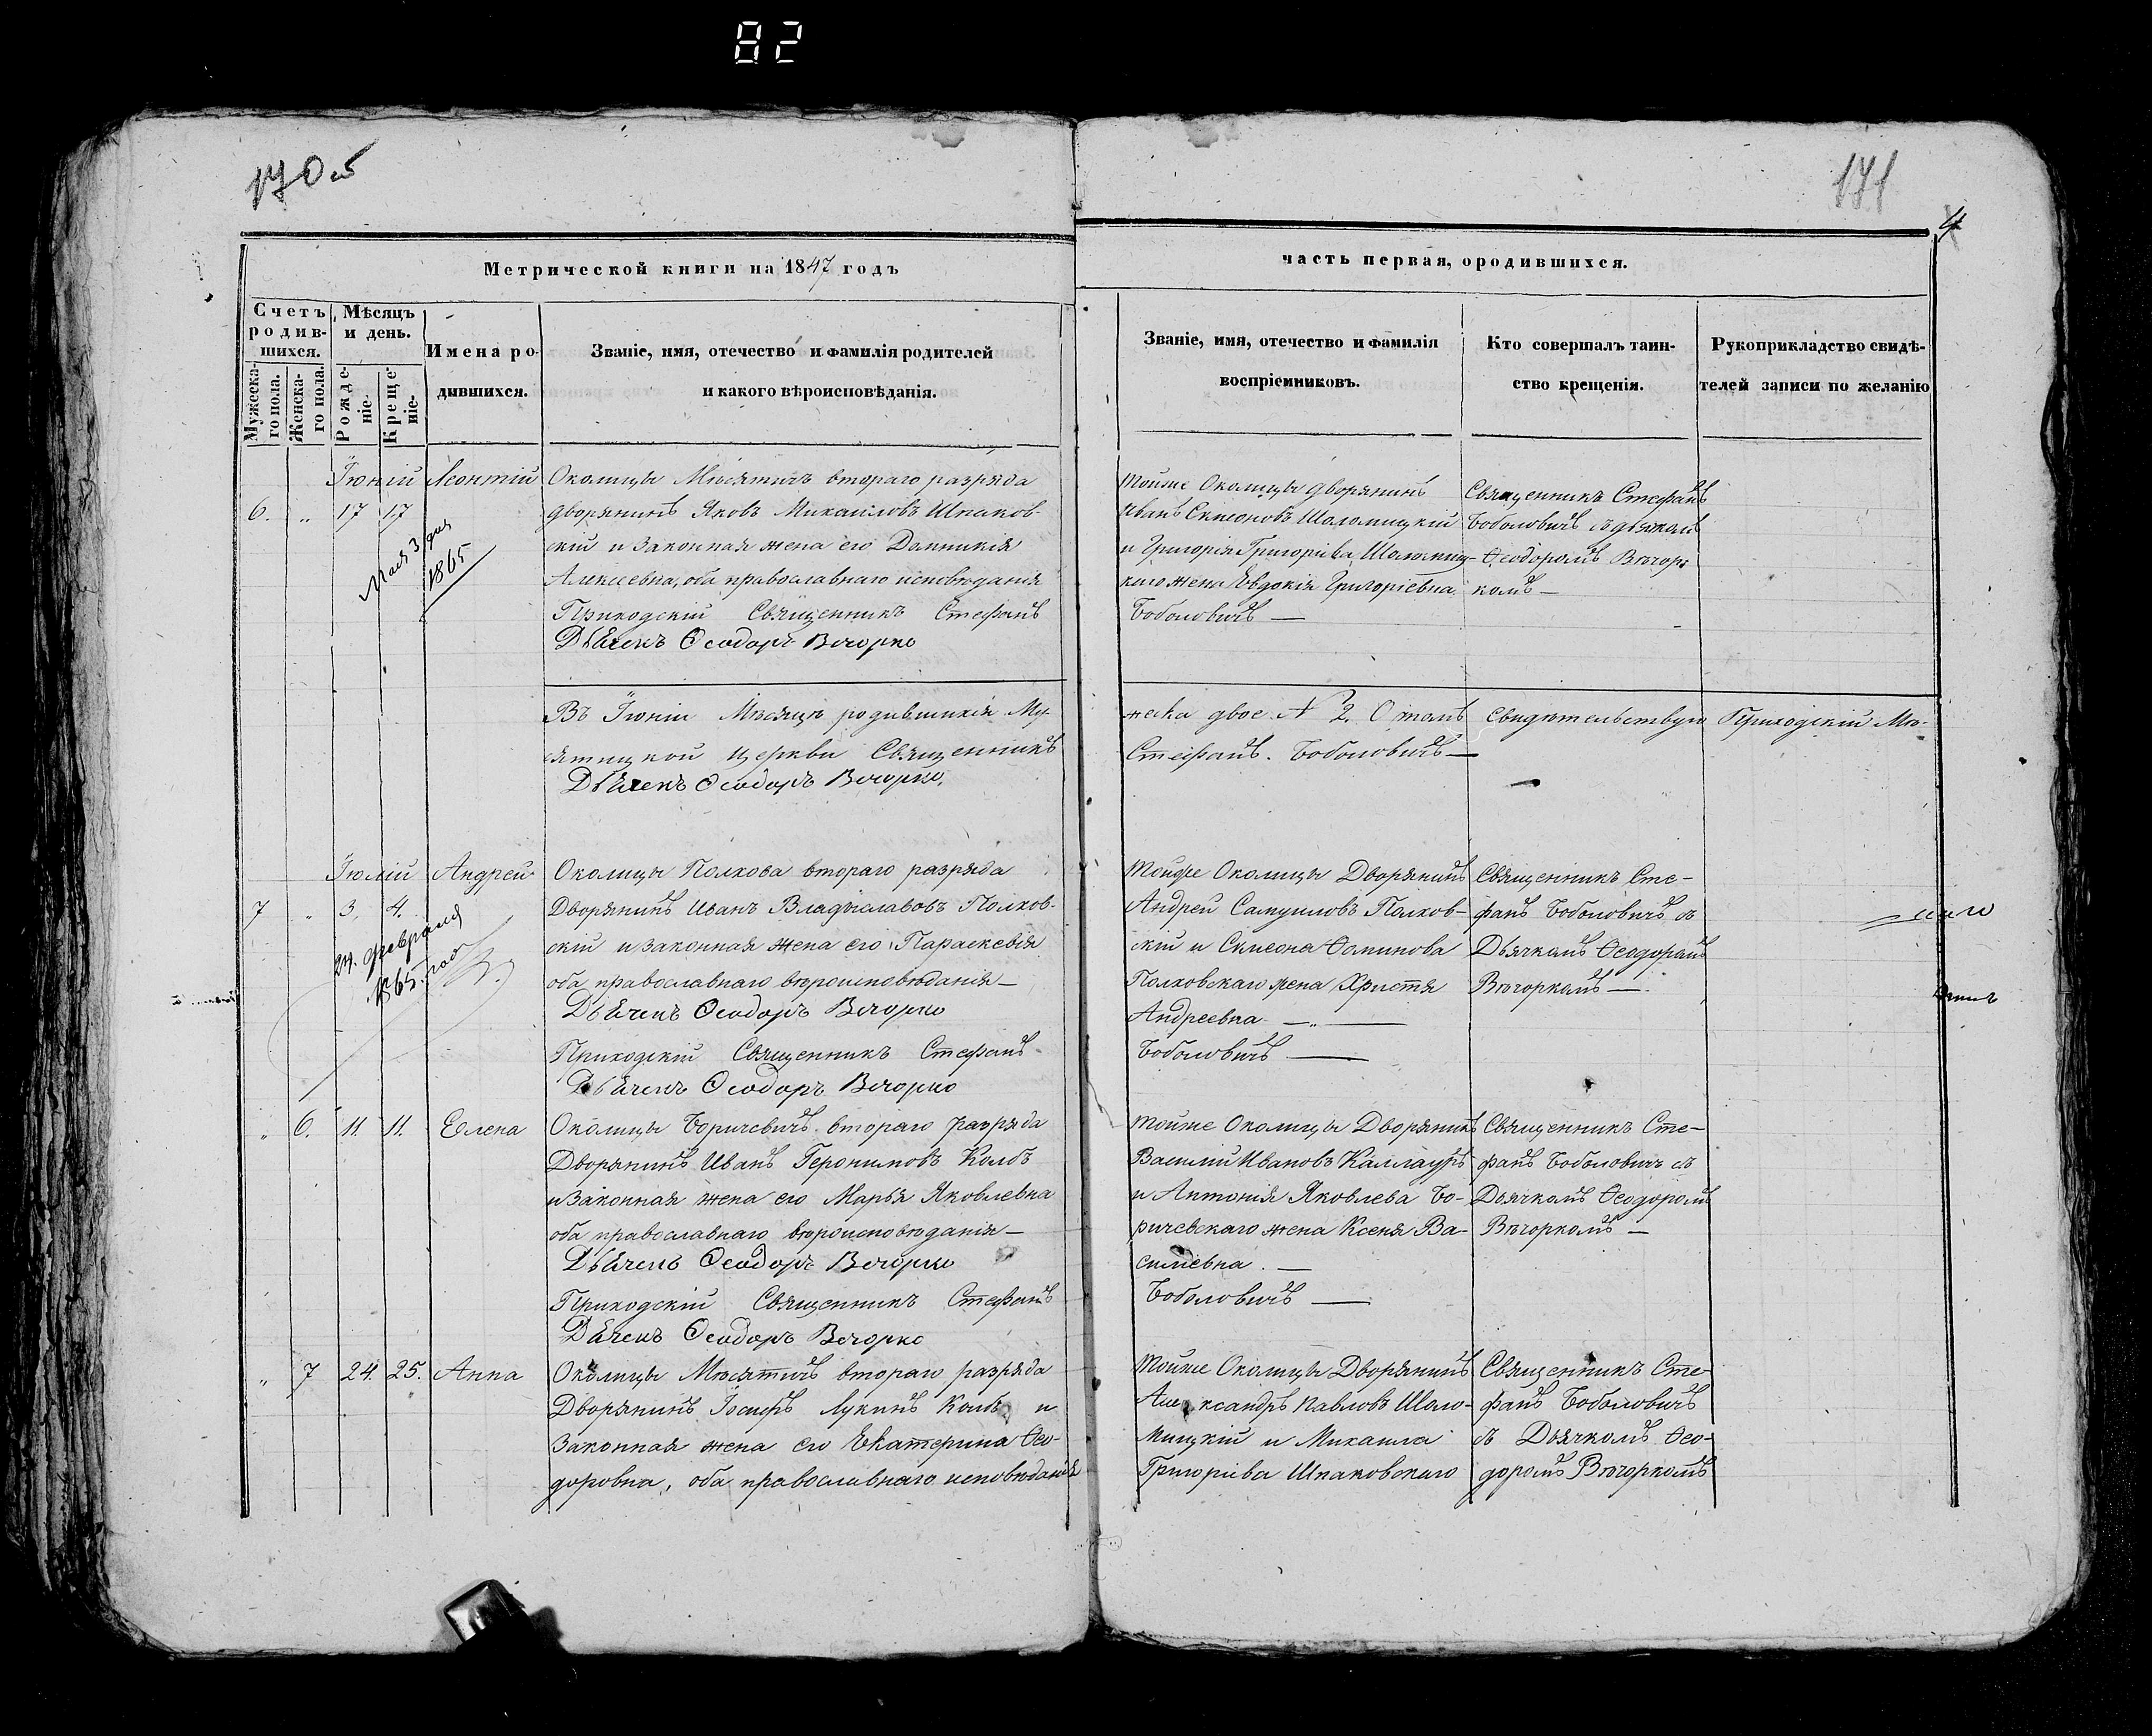 82
170 об
171
4
Метрической книги на 1847 годъ
часть первая, ородившихся.
Счетъ родив-шихся.
Мѣсяцъ и день.
Мужеска-го пола.
Женска-го пола.
Рожде-ніе-
Креще-ніе-
Имена ро-
дившихся.
Званіе, имя, отечество и фамилія родителей
и какого вѣроисповѣданія.
Званіе, имя, отечество и фамилія
воспріемниковъ.
Кто совершалъ таин-
ство крещенія.
Рукоприкладство свидѣ-
телей записи по желанію
Іюній Леонтій
6. „ 17 17
Мая 3 дня
1865
Околицы Мѣсятичъ втораго разряда
дворянинъ Яковъ Михаиловъ Шпаков-
скій и законная жена его Домникія
Алексеевна, оба православнаго исповѣданія
Приходскій Священникъ Стефанъ
Дьячекъ Ѳеодоръ Вечорко
тойже Околицы дворянинъ
Иванъ Симеоновъ Шоломицкій
и Григорія Григоріева Шоломиц-
каго жена Евдокія Григоріевна
Боболовичъ —
Священникъ Стефанъ
Боболовичъ съ дьячкомъ
Ѳеодоромъ Вѣчор-
комъ —
Въ Іюніи Мѣсяцѣ родившихся Му-
жеска двое № 2. О томъ свидѣтельствую Приходскій Мѣ-
сятицкой церкви Священникъ
Стефанъ Боболовичъ —
Дьячекъ Ѳеодоръ Вечорко.
Іюлій Андрей
7 „ 3. 4.
24. февраля
1865. год
Околицы Полхова втораго разряда
Дворянинъ Иванъ Владиславовъ Полхов-
скій и законная жена его Параскевія
оба православнаго вѣроисповѣданія —
Дьячекъ Ѳеодоръ Вечорко
Приходскій Священникъ Стефанъ
Дьячекъ Ѳеодоръ Вечорко
Тойже Околицы Дворянинъ
Андрей Самуиловъ Полхов-
скій и Симеона Ѳоминова
Полховскаго жена Христя
Андреевна —
Боболовичъ —
Священникъ Сте-
фанъ Боболовичъ съ
Дьячкомъ Ѳеодоромъ
Вѣчоркомъ —
„ 6. 11. 11. Елена
Околицы Боричевичъ втораго разряда
Дворянинъ Иванъ Іеронимовъ Колбъ
и законная жена его Марья Яковлевна
оба православнаго вѣроисповѣданія —
Дьячекъ Ѳеодоръ Вечорко
Приходскій Священникъ Стефанъ
Дьячекъ Ѳеодоръ Вечорко
тойже Околицы Дворянинъ
Василій Ивановъ Каллауръ
и Антонія Яковлева Бо-
ричевскаго жена Ксеня Ва-
силіевна. —
Боболовичъ —
Священникъ Сте-
фанъ Боболовичъ съ
Дьячкомъ Ѳеодоромъ
Вѣчоркомъ —
„ 7 24. 25. Анна
Околицы Мѣсятичъ втораго разряда
Дворянинъ Іосифъ Лукинъ Колбъ и
законная жена его Екатерина Ѳео-
доровна, оба православнаго исповѣданія
тойже Околицы Дворянинъ
Александръ Павловъ Шоло-
мицкій и Михаила
Григоріева Шпаковскаго
Священникъ Сте-
фанъ Боболовичъ
съ Дьячкомъ Ѳео-
доромъ Вѣчоркомъ